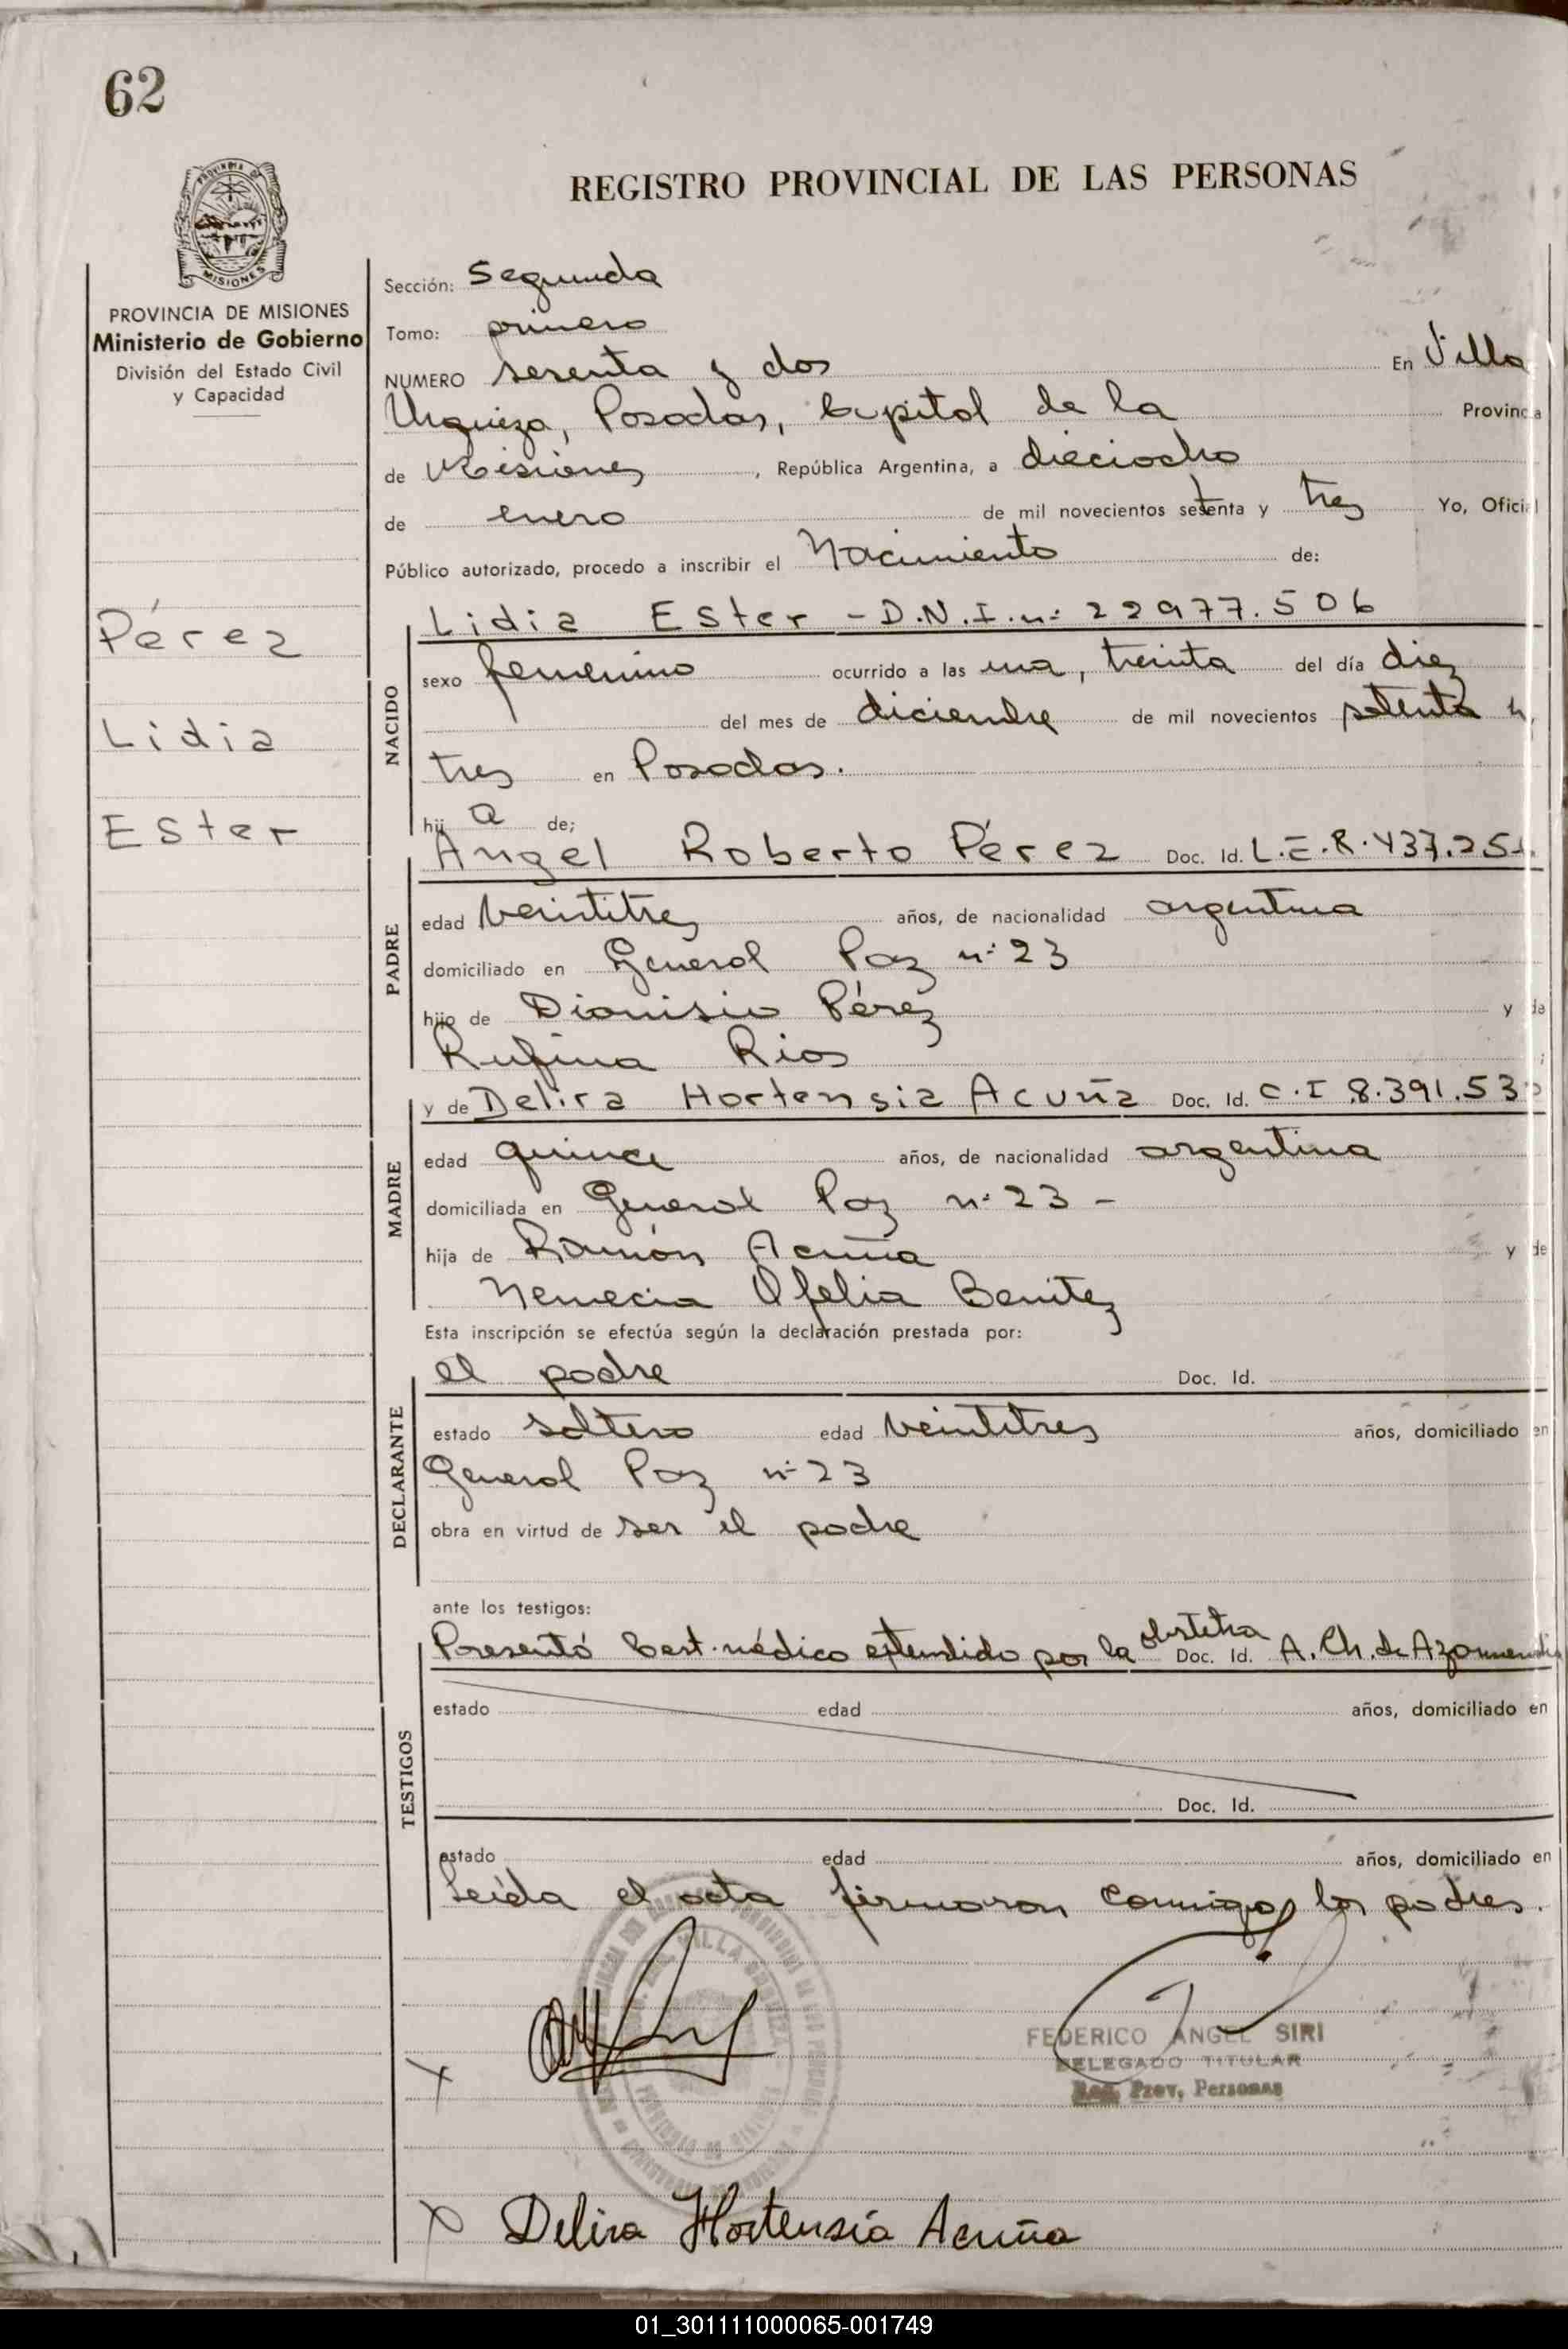 62
REGISTRO PROVINCIAL DE LAS PERSONAS
PROVINCIA DE MISIONES
Ministerio de Gobierno
División del Estado Civil
y Capacidad
Pérez
Lidia
Ester
Sección: Segunda
Tomo: primero
NUMERO sesenta y dos En Villa
Urquiza, Posadas, Capital de la Provincia
de Misiones, República Argentina, a dieciocho
de enero de mil novecientos setenta y tres Yo, Oficial
Público autorizado, procedo a inscribir el Nacimiento de:
NACIDO
Lidia Ester - D.N.I. nº 22977.506
sexo femenino ocurrido a las una, treinta del día diez
del mes de diciembre de mil novecientos setenta y
tres en Posadas.
hij a de;
PADRE
Angel Roberto Pérez Doc. Id. L.E.
edad veintitres años, de nacionalidad argentina
domiciliado en General Paz nº 23
hijo de Dionisio Pérez y de
Rufina Rios ;
MADRE
y de Delira Hortensia Acuña Doc. Id. C.I 8.391.53
edad quince años, de nacionalidad argentina
domiciliada en General Paz nº 23 -
hija de Ramón Acuña y de
Nemecia Ofelia Benitez
Esta inscripción se efectúa según la declaración prestada por:
DECLARANTE
el padre Doc. Id.
estado soltero edad veintitres años, domiciliado en
General Paz nº 23
obra en virtud de ser el padre
ante los testigos:
TESTIGOS
Presentó Cert. médico extendido por la obstetra Doc. Id. A. Ch. de
estado edad años, domiciliado en
Doc. Id.
estado edad años, domiciliado en
Leída el acta firmaron conmigo los padres.
FEDERICO ANGEL SIRI
DELEGADO TITULAR
Reg. Prov. Personas
Delira Hortensia Acuña
01_301111000065-001749